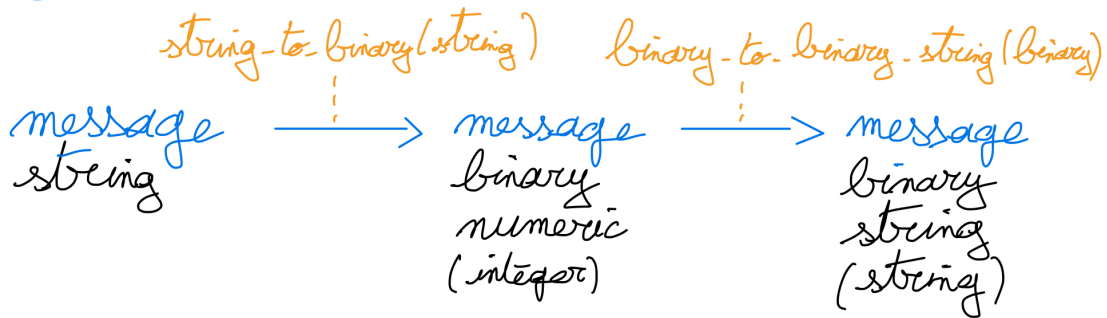 string_to_binary(string)
binary_to_binary_string(binary)
message
string
message
binary
numeric
(integer)
message
binary
string
(string)